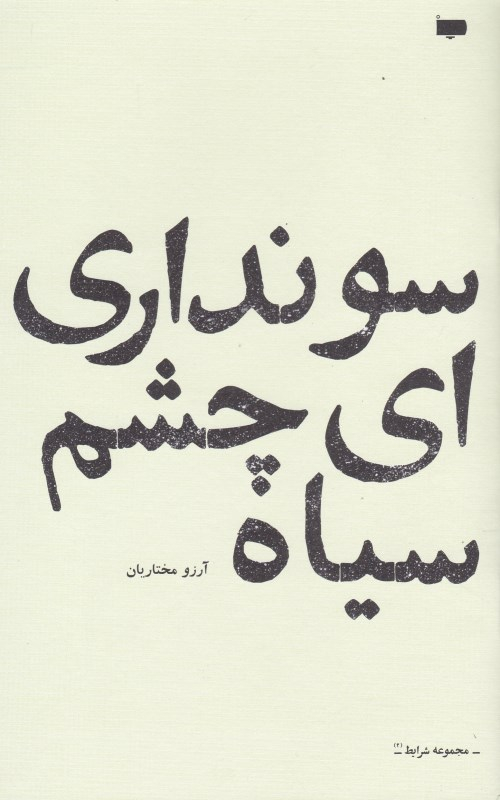 سو نداری
ای چشم
سیاه
آرزو مختاریان
_ مجموعه شرایط (۲) _